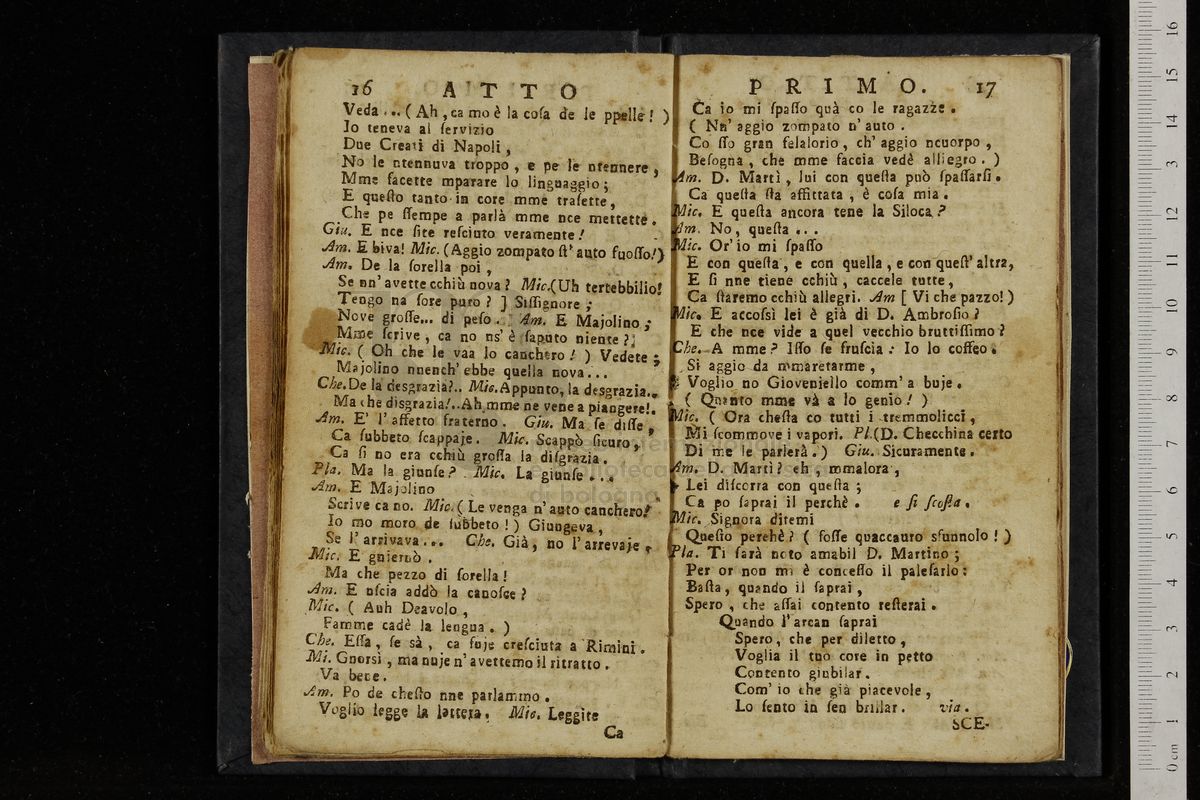 16 ATTO
Veda... ( Ah, ca mo è la cosa de le ppelle! )
Io teneva al servizio
Due Creati di Napoli,
No le ntennuva troppo, e pe le ntennere,
Mme facette mparare lo linguaggio;
E questo tanto in core mme trasette,
Che pe ssempe a parlà mme nce mettette.
Giu. E nce site resciuto veramente!
Am. E biva! Mic. (Aggio zompato st' auto fuosso!)
Am. De la sorella poi,
Se nn' avette cchiù nova? Mic.(Uh tertebbilio!
Tengo na sore puro? ] Sissignore;
Nove grosse... di peso. Am. E Majolino;
Mme scrive, ca no ns' è saputo niente?
Mic. ( Oh che le vaa lo canchero! ) Vedete;
Majolino nnench' ebbe quella nova...
Che. De la desgrazia?.. Mic. Appunto, la desgrazia..
Ma che disgrazia!..Ah mme ne vene a piangere!.
Am. E' l' affetto fraterno. Giu. Ma se disse,
Ca subbeto scappaje. Mic. Scappò sicuro,
Ca si no era cchiù grossa la disgrazia.
Pla. Ma la giunse? Mic. La giunse...
Am. E Majolino
Scrive ca no. Mic. ( Le venga n' auto canchero!
Io mo moro de subbeto! ) Giungeva,
Se l' arrivava... Che. Già, no l' arrevaje.
Mic. E gniernò.
Ma che pezzo di sorella!
Am. E nscia addò la canosce?
Mic. ( Auh Deavolo,
Famme cadè la lengua. )
Che. Essa, se sà, ca fuje cresciuta a Rimini.
Mi. Gnorsì, ma nuje n' avettemo il ritratto.
Va bene.
Am. Po de chesto nne parlammo.
Voglio legge la lattera. Mic. Leggite
Ca
PRIMO. 17
Ca io mi spasso quà co le ragazze.
( Nn' aggio zompato n' auto.
Co sso gran felalorio, ch' aggio ncuorpo,
Besogna, che mme faccia vedè alliegro. )
Am. D. Martì, lui con questa può spassarsi.
Ca questa sta affittata, è cosa mia.
Mic. E questa ancora tene la Siloca?
Am. No, questa...
Mic. Or' io mi spasso
E con questa, e con quella, e con quest' altra,
E si nne tiene cchiù, caccele tutte,
Ca staremo cchiù allegri. Am [ Vi che pazzo! )
Mic. E accossì lei è già di D. Ambrosio?
E che nce vide a quel vecchio bruttissimo?
Che. A mme? Isso se fruscia: Io lo coffeo.
Si aggio da mmaretarme,
Voglio no Gioveniello comm' a buje.
( Quanto mme và a lo genio! )
Mic. ( Ora chesta co tutti i tremmolicci,
Mi scommove i vapori. Pl.(D. Checchina certo
Di me le parlerà. ) Giu. Sicuramente.
Am. D. Martì? eh, mmalora,
Lei discorra con questa;
Ca po saprai il perchè. e si scosta.
Mic. Signora ditemi
Questo perehè? ( fosse quaccauro sfunnolo! )
Pla. Ti sarà noto amabil D. Martino;
Per or non mi è concesso il palesarlo:
Basta, quando il saprai,
Spero, che assai contento resterai.
Quando l' arcan saprai
Spero, che per diletto,
Voglia il tuo core in petto
Contento giubilar.
Com' io che già piacevole,
Lo sento in sen brillar. via.
SCE-